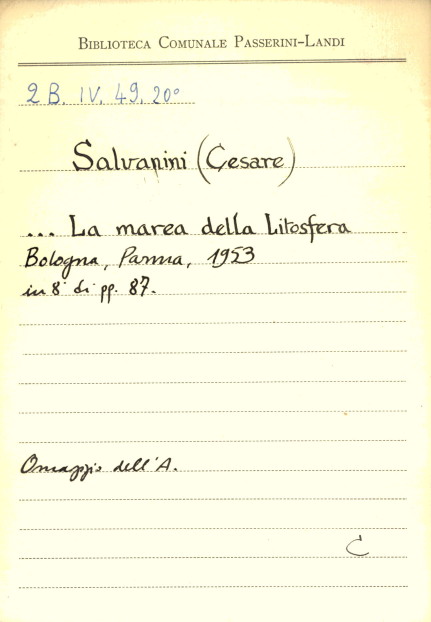 BIBLIOTECA COMUNALE PASSERINI-LANDI
2 B. IV. 49. 20°
Salvanini (Cesare)
... La marea della Litosfera
Bologna, Parma, 1953
in 8° di pp. 87.
Omaggio dell'A.
C